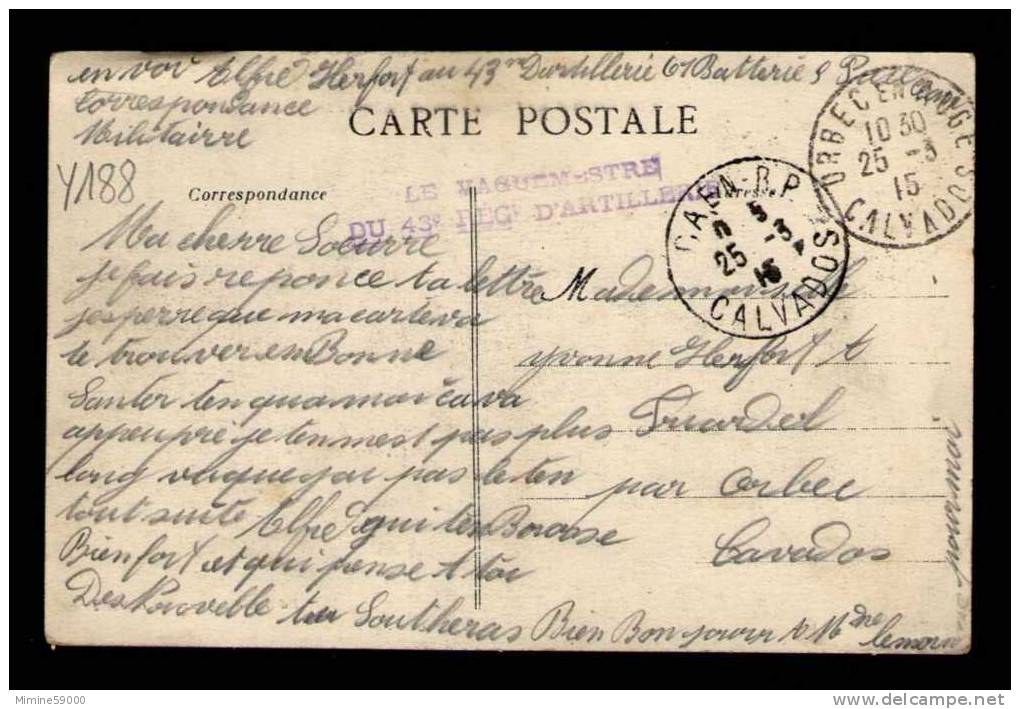 en voi Alfre Herfort au 43me Dartillerie 61 Batterie
Correspondance
Militairre
CARTE POSTALE
Y188
Correspondance
LE VAGUEMESTRE
DU 43e REGt D'ARTILLERIE
CAEN-R.P.
25 -3
15
CALVADOS
ORBEC EN AUGE
10 30
25 -3
15
CALVADOS
Ma cherre Soeurre
je fais reponce ta lettre
jesperre que ma carte va
te trouver en Bonne
Santer ten qua moi ca va
appeu pré je ten mest pas plus
long vuque jai pas le ten
tout suite Alfre qui ten Borasse
Bien fort et qui pense A toi
Des Nouvelle tu
Bien Bonjourr to Mdme
Mademoiselle
yvonne Herfort A
par Orbec
Cavados
Mimine59000
www.delcampe.net